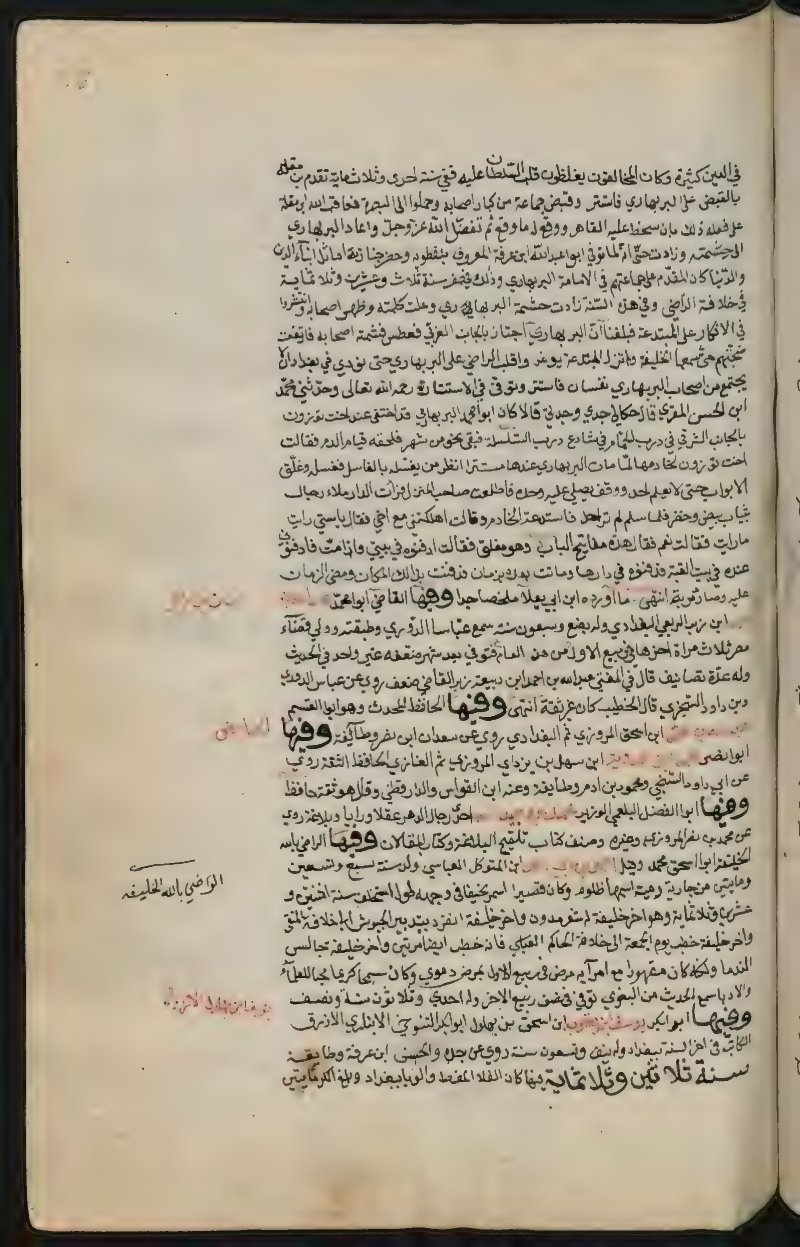 في الدين كثيرة وكان المخالفون يغلظون قلب السلطان عليه ففي سنة احدى وثلاثماية تقدم بن مقله
بالقبض على البربهاري فاستتر وقبض جماعة من كبار اصحابه وحملوا الى البصرة فعاقب الله ابن مقلة
على فعله ذلك بان سخط عليه القاهر ووقع له ما وقع ثم تفضل الله عز وجل واعاد البربهاري
الى حشمته وزادت حتى انه لما توفي ابو عبد الله ابن عرفة المعروف بنفطويه وحضر جنازته اماثل ابناء الدين
والدنيا كان المقدم على جماعتهم في الامامة البربهاري وذلك في صفر سنة ثلاث وعشرين وثلاثماية
في خلافة الراضي وفي هذه السنة زادت حشمة البربهاري وعلت كلمته وظهر اصحابه وانتشروا
في الانكار على المبتدعة فبلغنا ان البربهاري اجتاز بالجانب الغربي فعطس فشمته اصحابه فارتفعت
ضجتهم حتى سمعها الخليفة ولم تزل المبتدعة توغر قلب الراضي على البربهاري حتى نودي في بغداد ان لا
يجتمع من اصحاب البربهاري نفسان فاستتر وتوفي في الاستتار رحمه الله تعالى وحدثني محمد
ابن الحسن المقري قال حكى لي جدي وجدتي قالا كان ابو محمد البربهاري قد اختفى عند اخت توزون
بالجانب الشرقي في درب الحمام في شارع درب السلسلة فبقي نحو من شهر فلحقه قيام الدم فقالت
اخت توزون لخادمها لما مات البربهاري عندها مستترا انظر من يغسله بالغاسل فغسله وغلق
الابواب حتى لا يعلم احد ووقف يصلي عليه وحده فاطلعت صاحبة المنزل فرات الدار ملاء رجال
بثياب بيض وخضر فلما سلم لم تر احد فاستدعت الخادم وقالت اهلكتني مع اخي فقال يا ستي رايت
ما رايت فقالت نعم فقال هذه مفاتيح الباب وهو مغلق فقالت ادفنوه في بيتي واذا مت فادفنوني
عنده في بيت القبة فدفنوه في دارها وماتت بعده بزمان فدفنت بذلك المكان ومضى الزمان
عليه وصار تربة انتهى ما اورده ابن ابي يعلا ملخصا جدا وفيها القاضي ابو محمد
ابن زبر الربعي البغدادي وله بضع وسبعون سنة سمع عباسا الدوري وطبقته وولي قضاء
مصر ثلاث مرات اخرها في ربيع الاول من هذا العام فتوفي بعد شهر ضعفه غير واحد في الحديث
وله عدة تصانيف قال في المغني عبد الله بن احمد ابن ربيعة بن زبر القاضي ضعف روى عن عباس الدوري
وبن داود السجزي قال الخطيب كان غير ثقة انتهى وفيها الحافظ المحدث وهو ابو القسم
ابن اسحق المروزي ثم البغدادي روى عن سعدان ابن نصر وطايفة وفيها
ابو النضر ابن سهل بن يزداي المروزي ثم الغازي الحافظ الثقة روى
عن ابي داود السنجي ومحمود بن ادم وطايفة وعنه ابن القواس والدارقطني وقال هو ثقة حافظ
وفيها ابو الفضل البلعمي الوزير احد رجال الدهر عقلا ورايا وبلاغة روى
عن محمد بن نصر المروزي وغيره وصنف كتاب تلقيح البلاغة وكتاب المقالات وفيها الراضي بالله
الخليفة ابو اسحق محمد وقيل ابن المتوكل العباسي ولد سنة سبع وتسعين
ومايتين من جارية رومية اسمها ظلوم وكان قصيرا اسمر نحيفا في وجهه طول استخلف سنة اثنتين و
عشرين وثلاثماية وهو اخر خليفة له شعر مدون واخر خليفة انفرد بتدبير الجيوش الى خلافة المتقي
واخر خليفة خطب يوم الجمعة الى خلافة الحاكم العباسي فانه خطب ايضا مرتين واخر خليفة جالس
الندما ولكنه كان مقهورا مع امرايه مرض في ربيع الاول بمرض دموي وكان سمحا كريما محبا للعلماء
والادبا سمع الحديث من البغوي توفي في نصف ربيع الاخر وله احدى وثلاثون سنة ونصف
وفيها ابو بكر يوسف بن يعقوب ابن اسحق بن بهلول ابو بكر التنوخي الانباري الازرق
الكاتب في اخر السنة ببغداد وله نيف وتسعون سنة روى عن جده والحسن ابن عرفة وطايفة
سنة ثلاثين وثلاثماية فيها كان الغلا المفرط والوبا ببغداد وبلغ الكر مايتين
الراضي بالله الخليفه